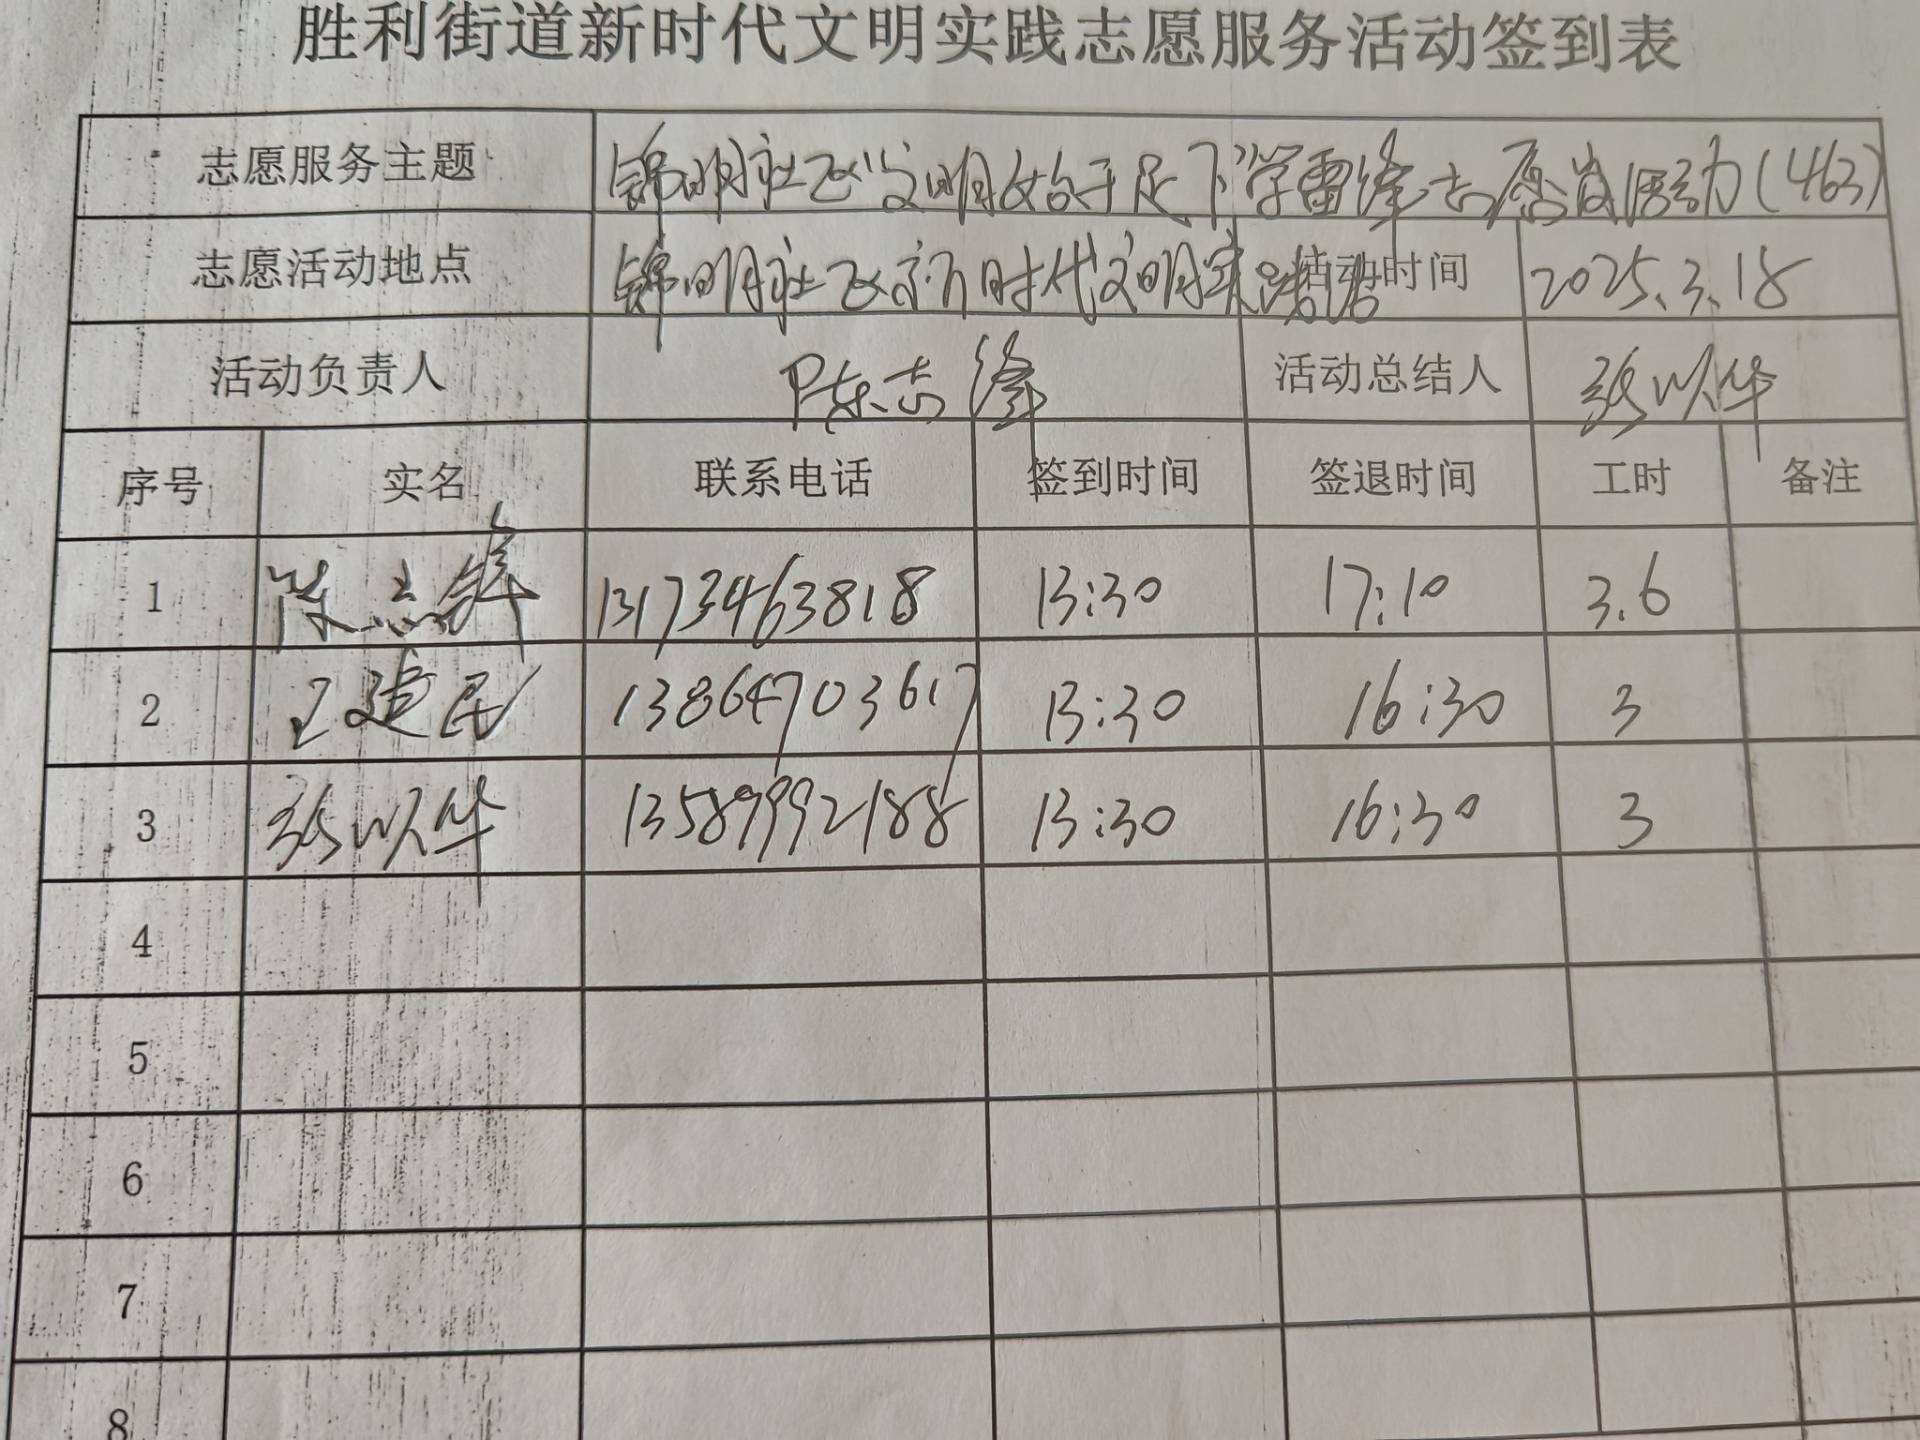 胜利街道新时代文明实践志愿服务活动签到表
志愿服务主题 锦明社区“文明始于足下”学雷锋志愿服活动(463)
志愿活动地点 锦明社区新时代文明实践站 活动时间 2025.3.18
活动负责人 陈志锋 活动总结人 张以华
序号 实名 联系电话 签到时间 签退时间 工时 备注
1 陈志锋 13173463818 13:30 17:10 3.6
2 王建民 13864703617 13:30 16:30 3
3 张以华 13589992188 13:30 16:30 3
4
5
6
7
8